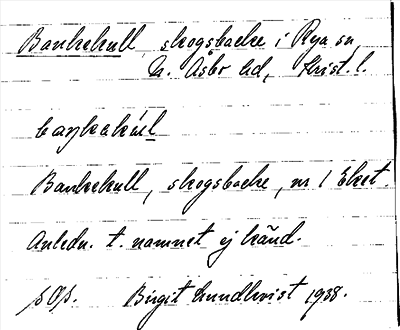 Bankekull, skogsbacke i Rya sn,
N. Åsbo hd, Krist. l.
baŋkakúl
Bankekull, skogsbacke, nr 1 Eket.
Anledn. t. namnet ej känd.
Birgit Lundkvist 1938.